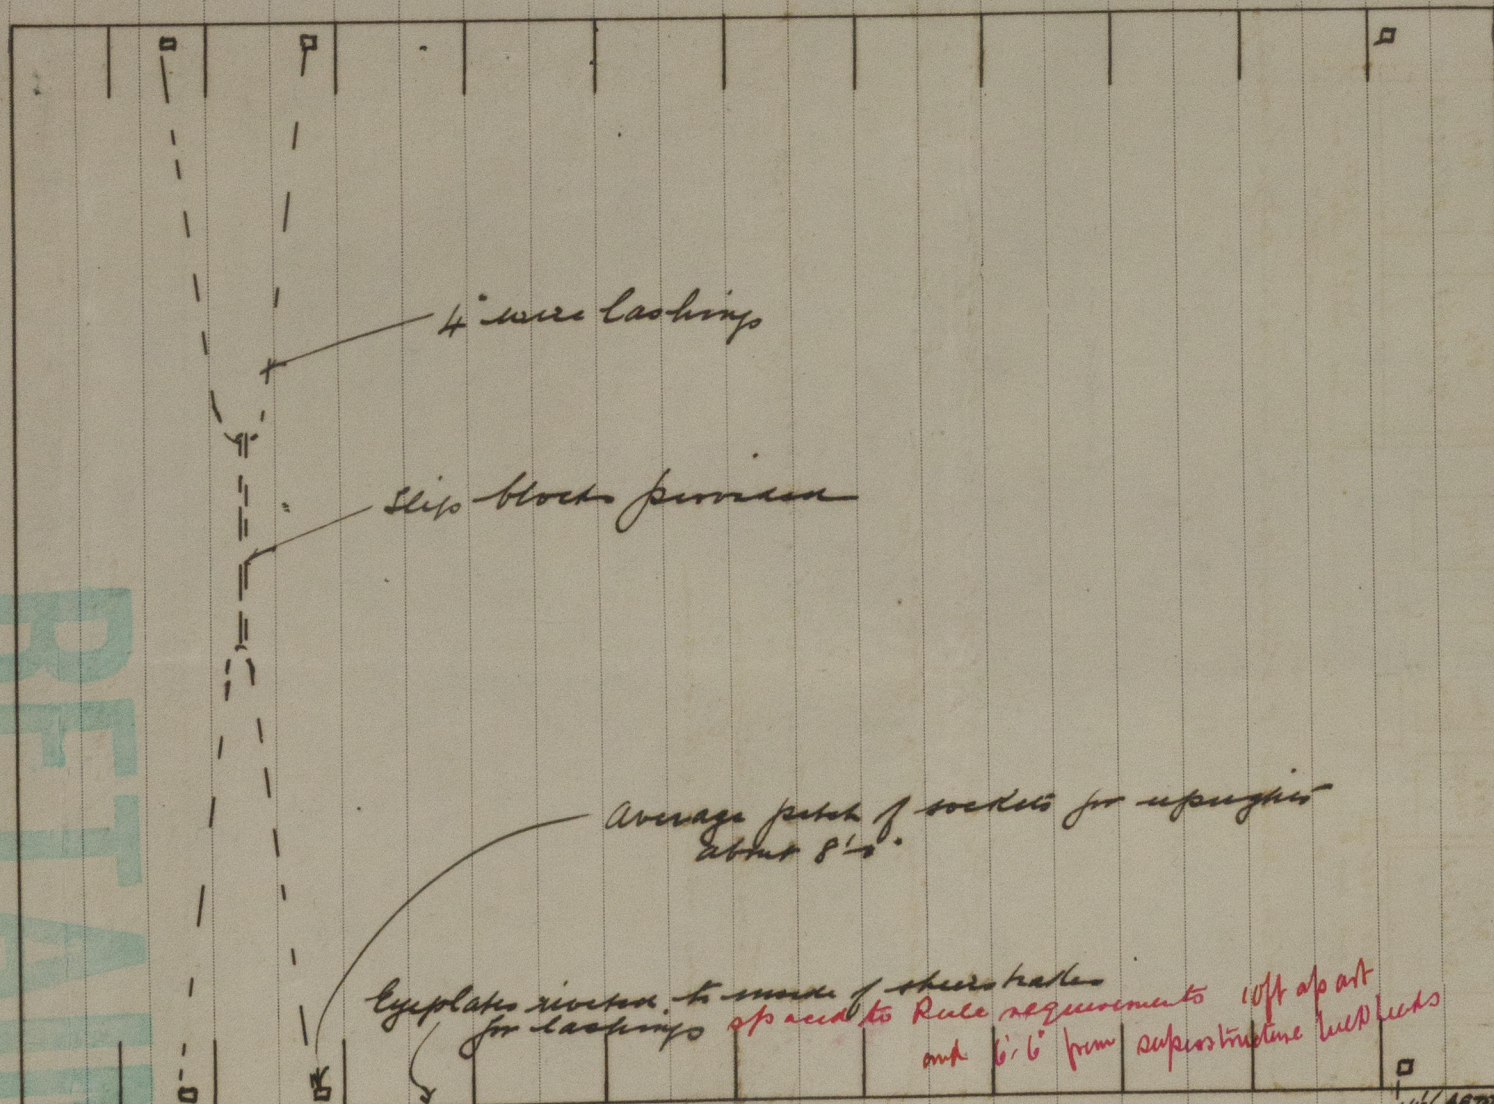 4" wire lashings
Slip blocks provided
Average pitch of sockets for uprights
about 8'-0"
Eyeplates riveted to inside of sheerstrakes
for lashings spaced to Rule requirements 10ft apart
and 6'.6" from superstructure bulkheads
RETAIN